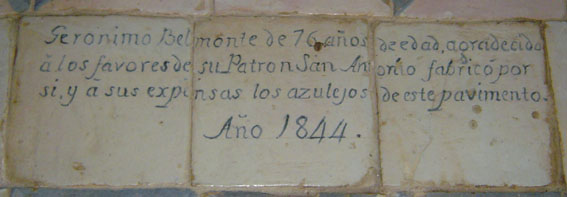 Geronimo Belmonte de 76 años de edad, agradecido
á los favores de su Patron San Antonio fabricó por
si, y a sus expensas los azulejos de este pavimento.
Año 1844.